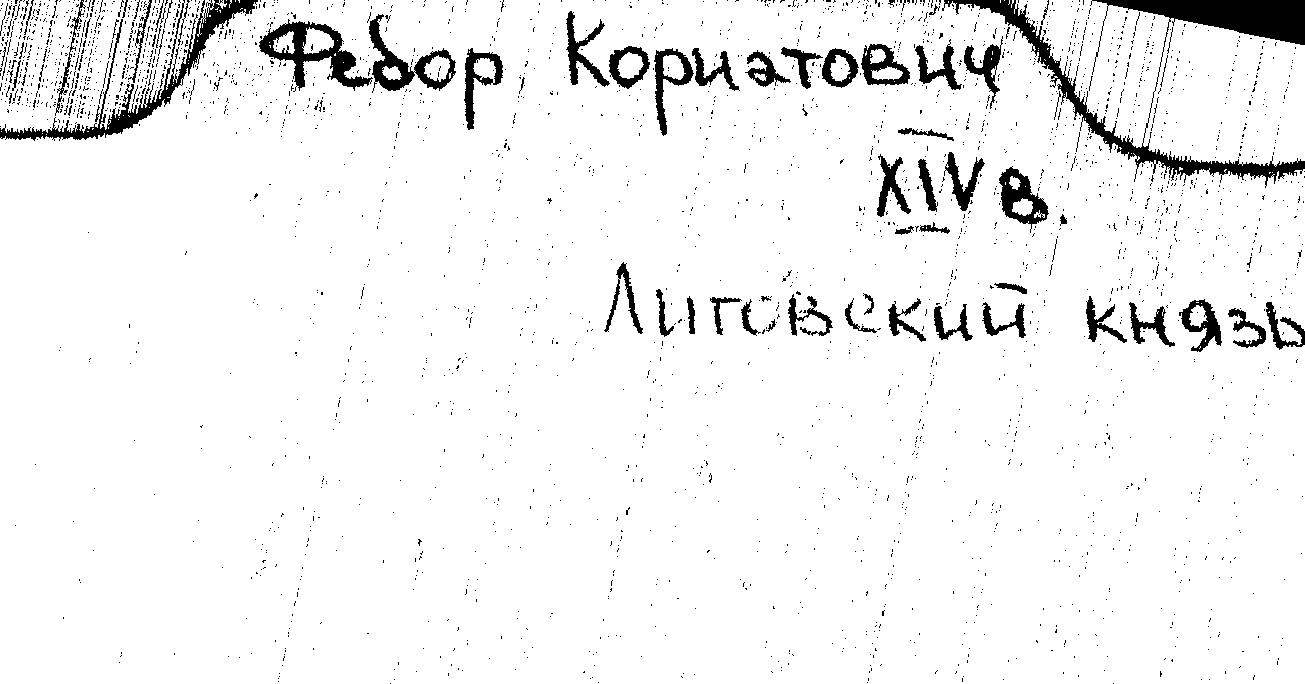 Федор Кориатович
XIV в.
Литовский князь